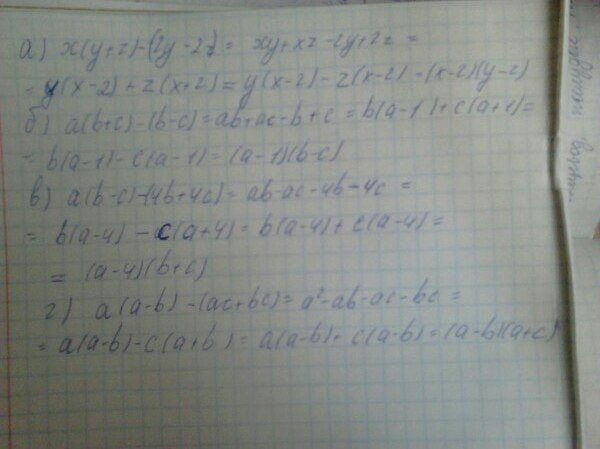 а) x(y+z)-(2y-2z)= xy+xz-2y+2z =
= y(x-2)+z(x+2)= y(x-2)-z(x-2)-(x-2)(y-z)
б) a(b+c)-(b-c)=ab+ac-b+c = b(a-1)+c(a+1)=
= b(a-1)-c(a-1)=(a-1)(b-c)
в) a(b-c)-(4b+4c)= ab-ac-4b-4c =
= b(a-4)-c(a+4)= b(a-4)+c(a-4)=
= (a-4)(b+c)
г) a(a-b)-(ac+bc)= a²-ab-ac-bc =
= a(a-b)-c(a+b)= a(a-b)+c(a-b)=(a-b)(a+c)